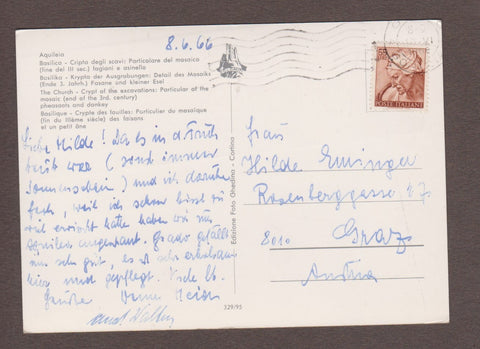 8.6.66
Aquileia
Basilica - Cripta degli scavi: Particolare del mosaico
(fine del III sec.) fagiani e asinello
Basilika - Krypta der Ausgrabungen: Detail des Mosaiks
(Ende 3. Jahrh.) Fasane und kleiner Esel
The Church - Crypt of the excavations: Particular of the
mosaic (end of the 3rd. century)
pheasants and donkey
Basilique - Crypte des fouilles: Particulier du mosaïque
(fin du IIIème siècle) des faisans
et un petit âne
Liebe Hilde! Da es in d. Früh
trüb war (sonst immer
Sonnenschein) und ich darüber
froh, weil ich schon bissl zu
viel erwischt hatte haben wir uns
Aquileia angeschaut. Grado gefällt
mir sehr gut, es ist sehr erholsam
hier und gepflegt. Viele lb.
Grüße Deine
und Walter
Edizione Foto Ghedina - Cortina
329/95
POSTE ITALIANE
Frau
Hilde Eminger
Rosenberggasse
8010 Graz
Austria